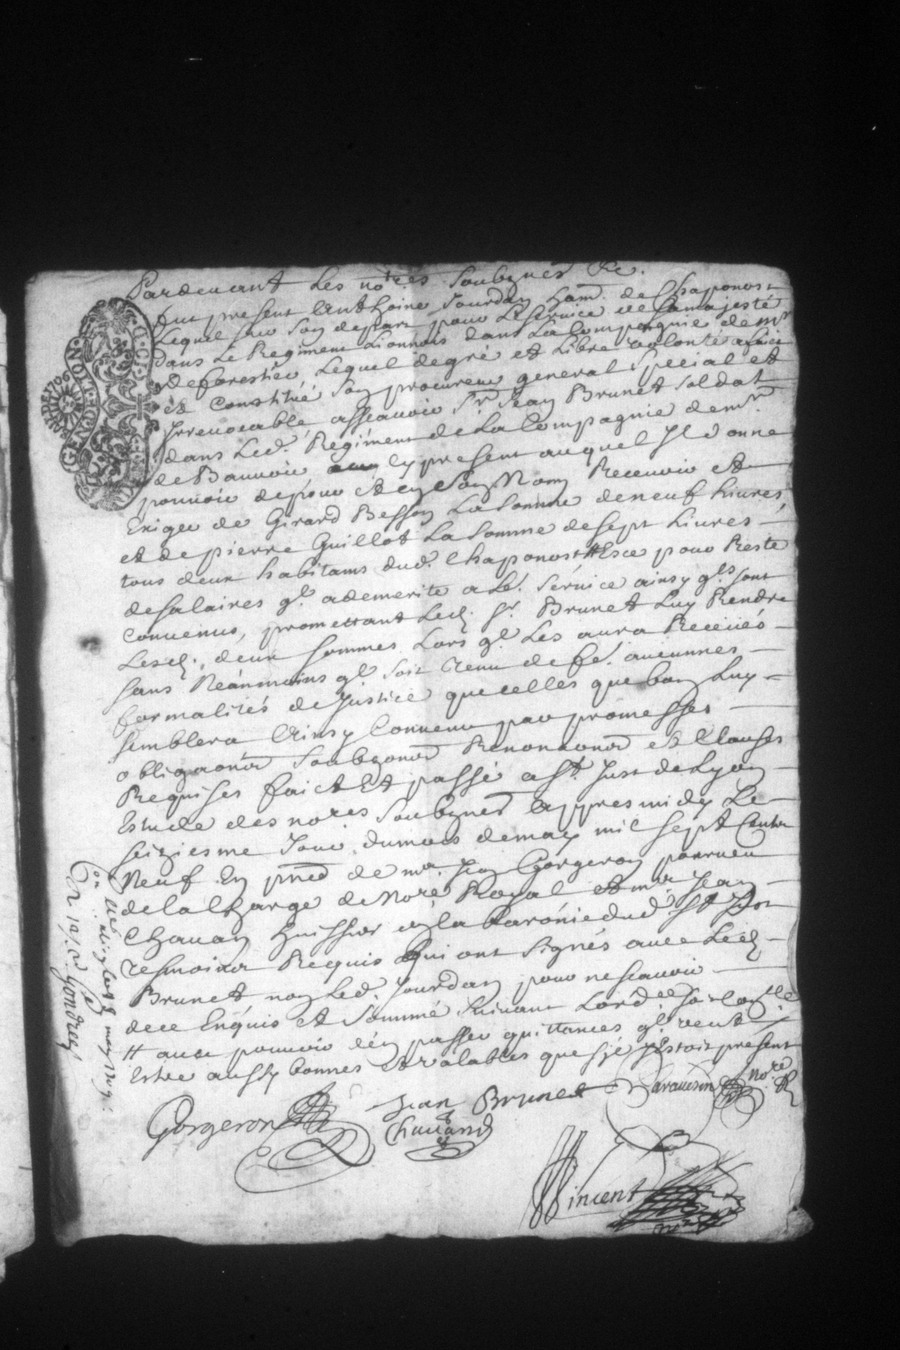 Pardevant Les no.res Soubznés &c.
fut present Anthoine Jourdan ham. de Chaponost
Lequel sur son depart pour Le service de Samajesté
dans Le Regiment Lionnois dans La Compagnie de mr.
deforestier Lequel degré et Libre volonté a faict
et Constitué son procureur general special et
Irrevocable assavoir Sr. Jean Brunet soldat
dans Led. Regiment de La Compagnie de mr.
de Bauvoir cy present auquel Il donne
pouvoir depour et en son Nom Recevoir et
Exiger de Girard Besson La somme de neuf Livres
et de pierre Guillot La somme de sept Livres
tous deux habitans dud. Chaponost # Esce pour Reste
de salaires ql. a demerité a Le. service ainsy qls. sont
Convenus, promettant Led. Sr. Brunet Luy Rendre
Lesd. deux sommes Lors ql. Les aura Receües
sans Neanmoins ql. soit tenu de fe. aucunnes
formalités de Justice que celles que bon Luy
semblera Ainsy Convenu par promesses
obligaons Soubzons Renonons et Clauses
Requises faict Et passé a St. Just de Lyon
Estude des nores Soubznes appres midy Le
seiziesme Jour du mois de may mil sept Cents
Neuf En pnce de mr. Jean Gorgeron pourveu
de la Charge de Nore Royal et mr. Jean
Chavan huissier en la baronie dud. St. Just
tesmoins Requis Qui ont signés avec Led.
Brunet non Led. Jourdan pour ne scavoir
de ce Enquis et Sommé Suivant Lordce.
# avec pouvoir den passer quittances ql. veut
Estre aussy bonnes Et valables que sy Jl estoit present
Gorgeron
Jean Brunet
Chavand
nore R
Vincent
may 1709
GEN. DE LION